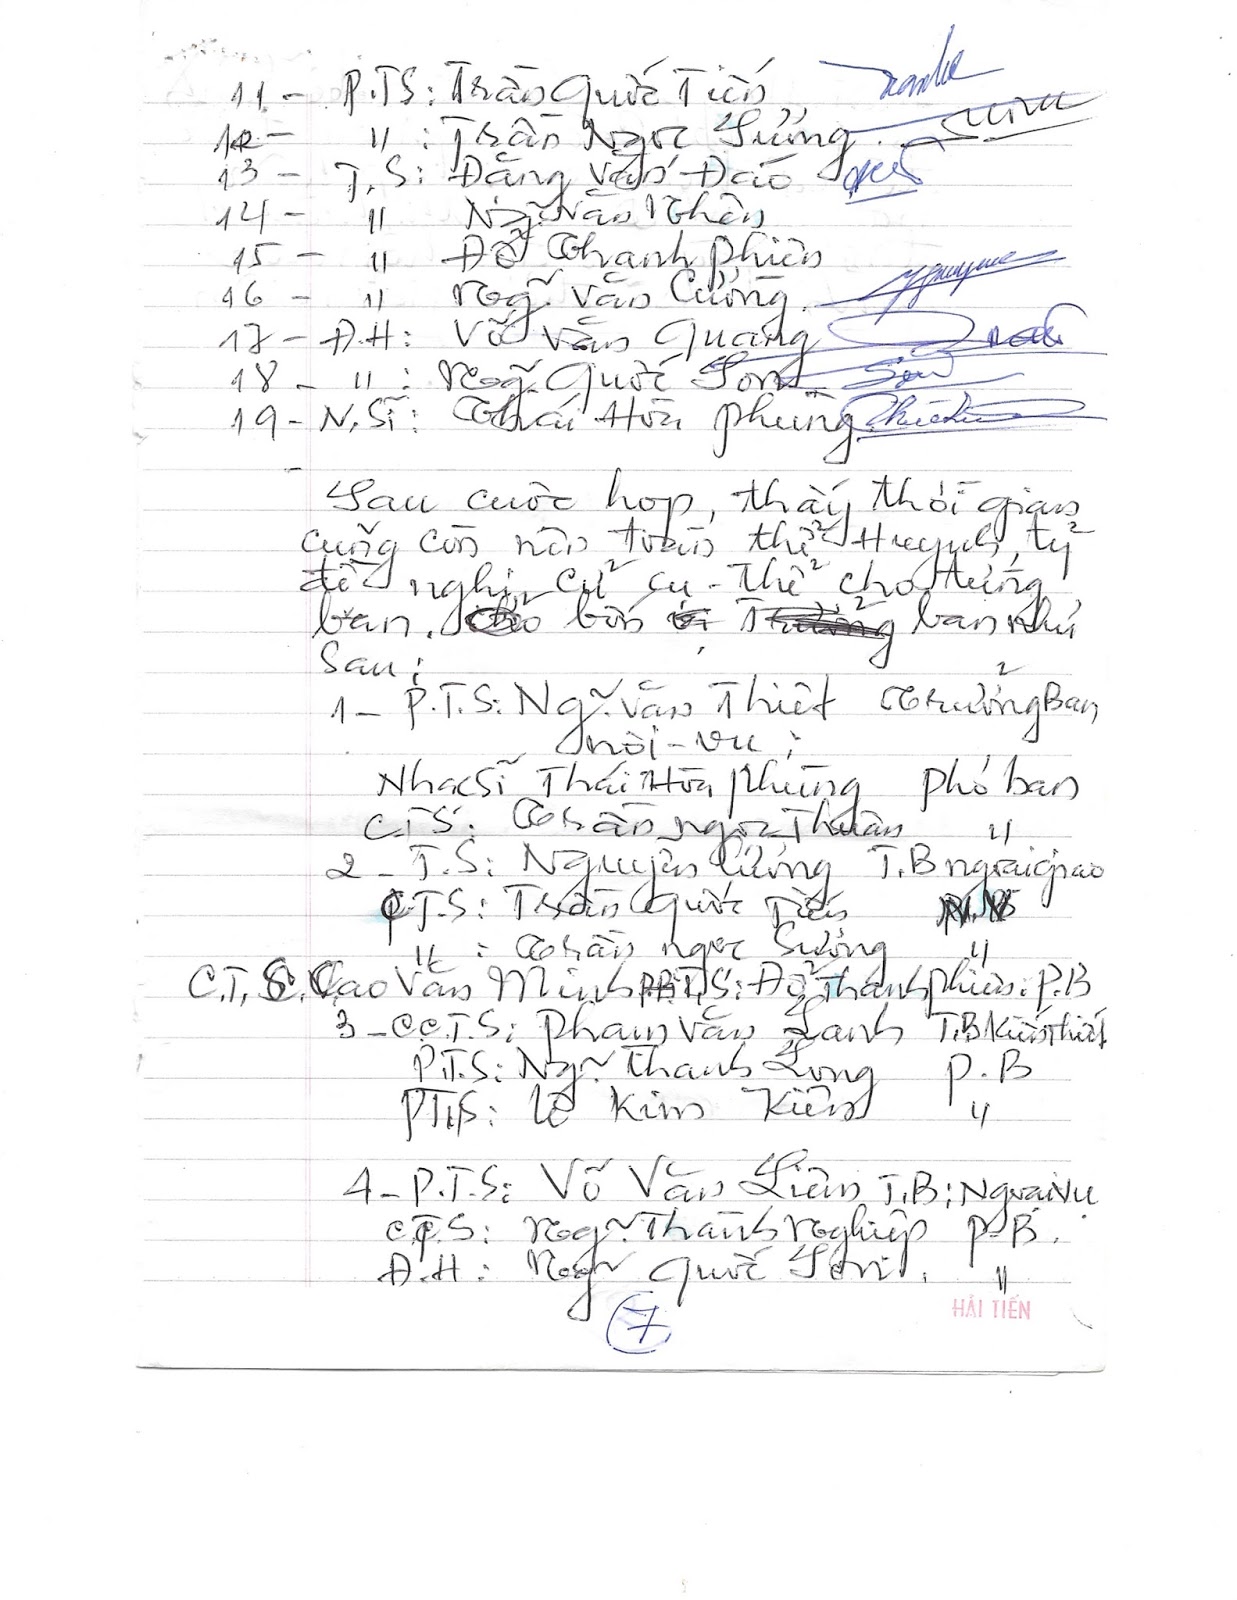 11 - P.T.S: Trần Quốc Tiến
12 - " : Trần Ngọc Sưởng.
13 - T.S: Đặng Văn Đáo
14 - " Ng~ Văn Nhân
15 - " Đỗ Thanh Phiên
16 - " Ng~ Văn Cường.
17 - Đ.H: Võ Văn Quang
18 - " : Ng~ Quốc Sơn Sơn
19 - N.Sĩ: Thái Hòa Phùng
Sau cuộc họp, thấy thời gian
cũng còn nên toàn thể Huynh, tỷ
đề nghị cử cụ - thể cho từng
ban. bốn ban như
sau:
1 - P.T.S: Ng~ Văn Thiết Trưởng Ban
nội - vụ;
Nhạc Sĩ Thái Hòa Phùng phó ban
C.T.S: Trần ngọc Thuần "
2 - T.S: Nguyễn Cường T.B ngoại giao
P.T.S: Trần Quốc Tiến P.B
" : Trần ngọc Sưởng "
C.T.S. Cao Văn Minh P.B T.S: Đỗ Thanh phiên: P.B
3 - C.T.S: Phạm Văn Lanh T.B Kiến thiết
P.T.S: Ng~ Thanh Long P.B
P.T.S: Lê Kim Kiên "
4 - P.T.S: Võ Văn Liên T.B; Ngoại Vụ
C.T.S: Ng~ Thành Nghiệp P.B.
Đ.H: Ng~ Quốc Sơn. "
7
HẢI TIẾN